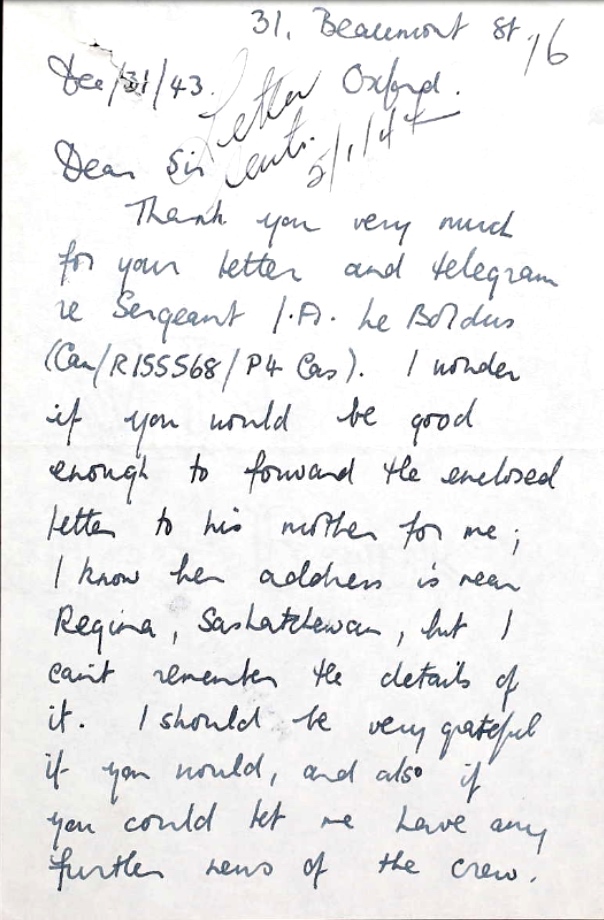 31, Beaumont St
76
Dec/31/43. Oxford.
Letter
sent.
5/1/44
Dear Sir
Thank you very much
for your letter and telegram
re Sergeant J.A. Le Boldus
(Can/R155568/P4 Cas). I wonder
if you would be good
enough to forward the enclosed
letter to his mother for me;
I know her address is near
Regina, Saskatchewan, but I
can't remember the details of
it. I should be very grateful
if you would, and also if
you could let me have any
further news of the crew.